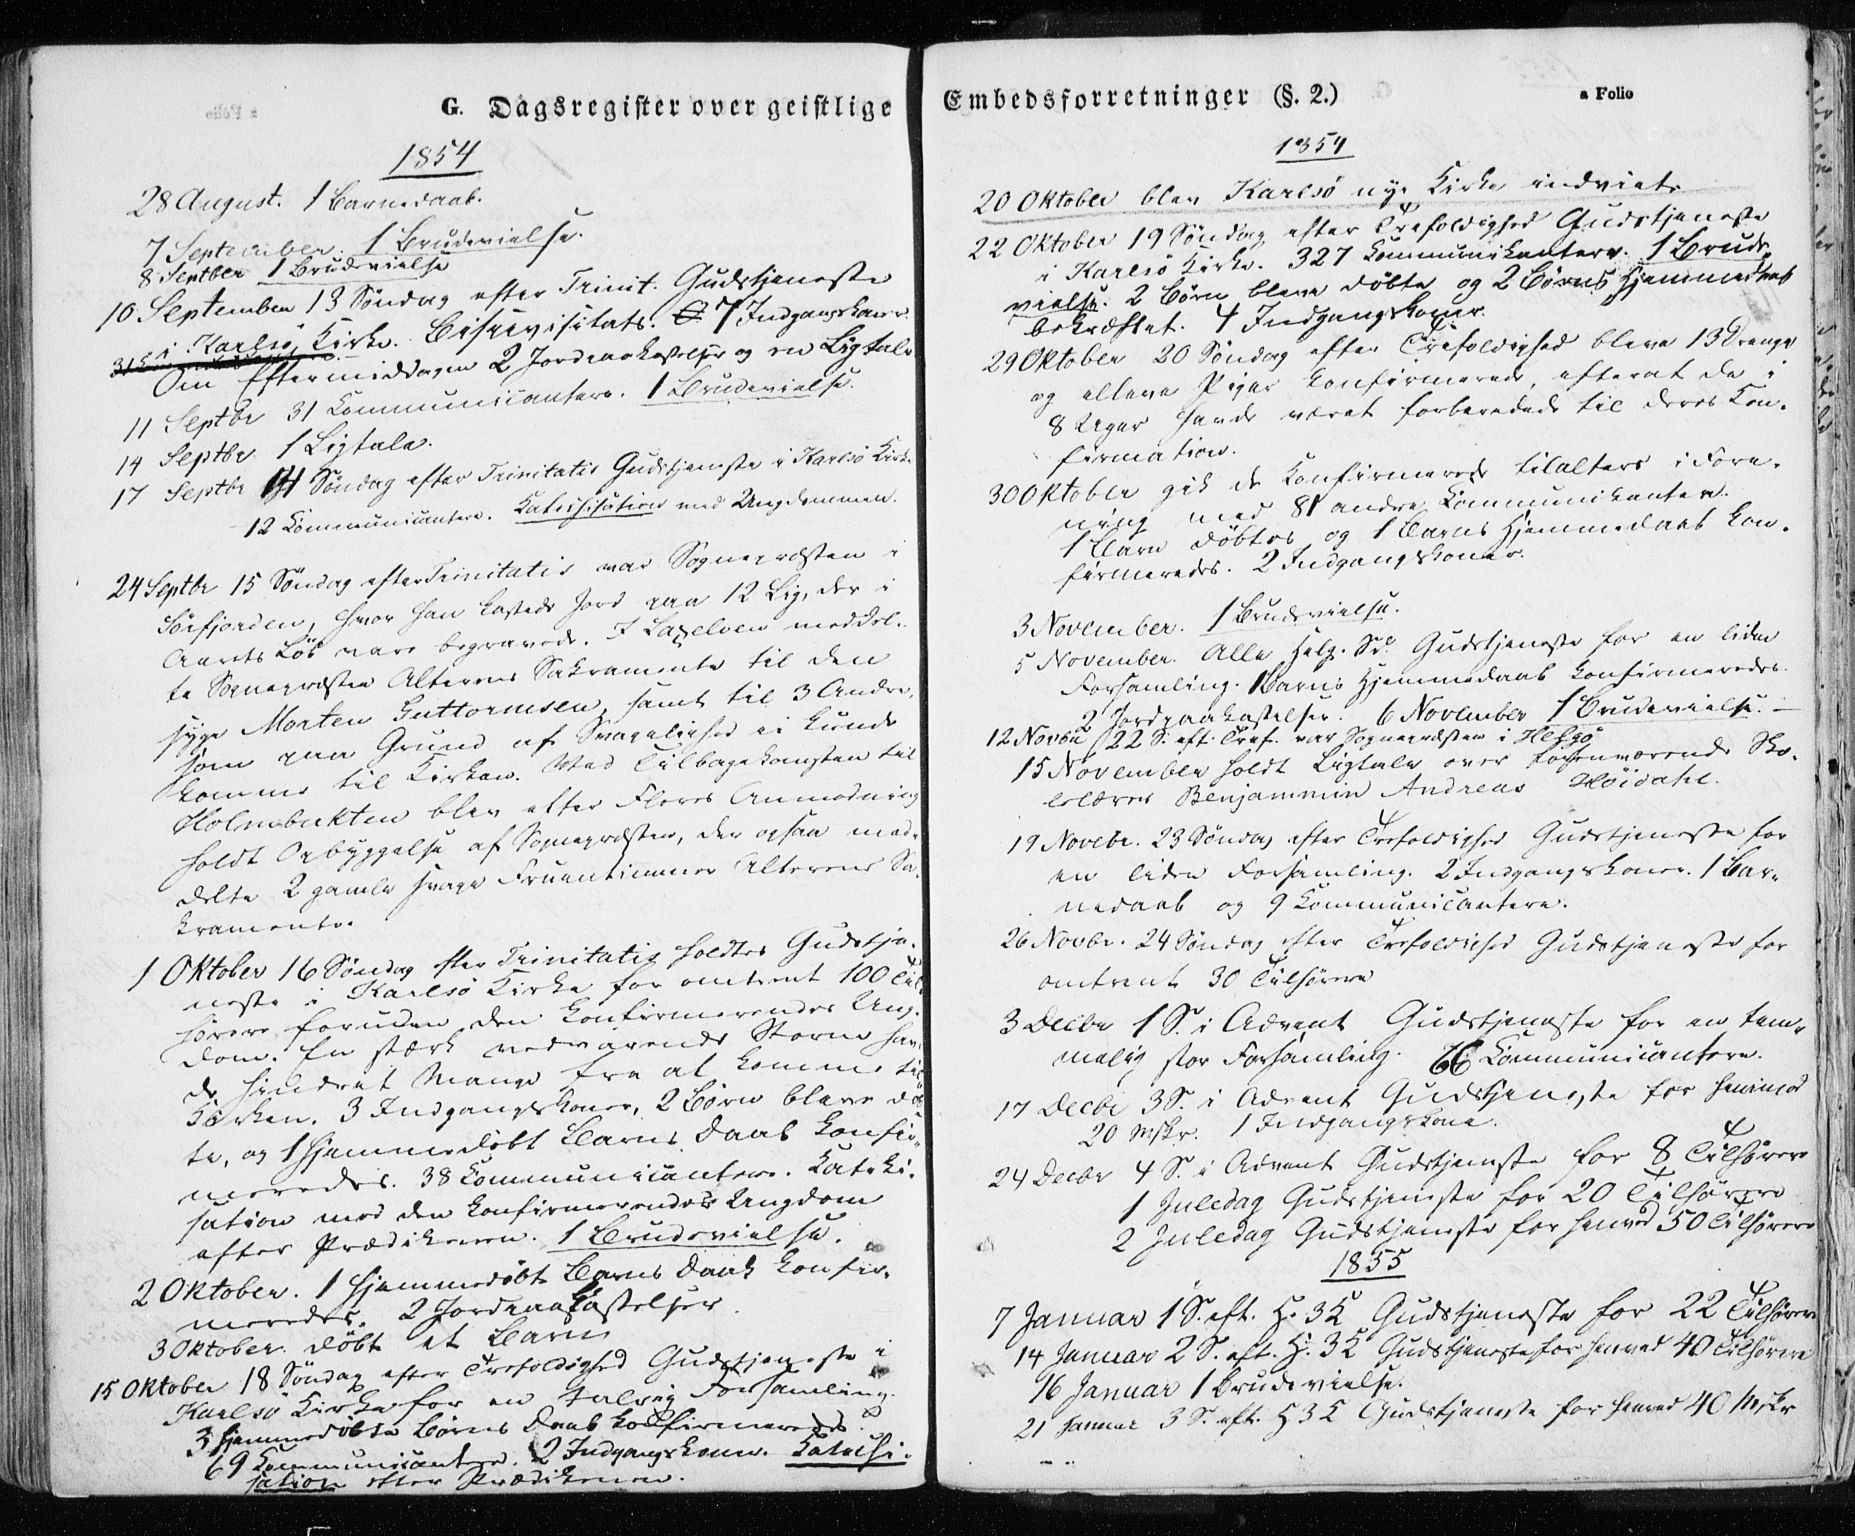 G. Dagsregister over geistlige
1854
28 August. 1 Barnedaab.
7 September. 1 Brudevielse.
8 Septber 1 Brudevielse
10 September 13 Søndag efter Trinit. Gudstjeneste
i Karlsø Kirke. Bispevisitats. 7 Indgangskoner.
Om Eftermiddagen 2 Jordpaakastelser og en Ligtale
11 Septbr 31 Kommunicantere. 1 Brudevielse.
14 Septbr 1 Ligtale.
17 Septbr 14 Søndag efter Trinitatis Gudstjeneste i Karlsø Kirke
12 Kommunicantere. Katechisation med Ungdommen.
24 Septbr 15 Søndag efter Trinitatis var Sognepræsten i
Sörfjorden, hvor han kastede Jord paa 12 Lig, der i
Aarets Løb vare begravede. I meddel-
te Sognepræsten Alterens Sakramente til den
syge Morten Guttormsen, samt til 3 Andre,
som paa Grund af Svagelighed ei kunde
komme til Kirken. Ved Tilbagekomsten til
Holmebukten blev efter Fleres Anmodning
holdt Opbyggelse af Sognepræsten, der ogsaa med-
delte 2 gamle svage Fruentimmer Alterens Sa-
kramente.
1 Oktober 16 Søndag efter Trinitatis holdtes Gudstje-
neste i Karlsø Kirke for omtrent 100 Til-
hørere foruden den konfirmerendes Ung-
dom. En stærk vedvarende Storm hav-
de hindret Mange fra at komme til
Kirken. 3 Indgangskoner, 2 Børn bleve døb-
te, og 1 hjemmedøbt Barns Daab konfir-
meredes. 38 Kommunicantere. Kateki-
sation med den konfirmerendes Ungdom
efter Prædikenen. 1 Brudevielse.
2 Oktober. 1 hjemmedøbt Barns Daab konfir-
meredes. 2 Jordpaakastelser.
3 Oktober. døbt et Barn
15 Oktober 18 Søndag efter Trefoldighed Gudstjeneste i
Karlsø Kirke for en talrig Forsamling.
3 hjemmedøbte Børns Daab konfirmeredes.
69 Kommunicantere. 2 Indgangskoner. Katechi-
sation efter Prædikenen.
Embedsforretninger (§. 2.)
a Folio
1854
20 Oktober blev Karlsø nye Kirke indviet.
22 Oktober 19 Søndag efter Trefoldighed Gudstjeneste
i Karlsø Kirke. 327 Kommunikantere. 1 Brude-
vielse. 2 Børn bleve døbte og 2 Børns Hjemmedaab
bekræftet. 4 Indgangskoner.
29 Oktober 20 Søndag efter Trefoldighed bleve 13 Drenge
og elleve Piger konfirmerede, efterat de i
8 Uger havde været forberedede til deres Kon-
firmation.
30 Oktober gik de Konfirmerede tilalters i Fore-
ning med 81 andre Kommunikantere.
1 Barn døbtes og 1 Barns Hjemmedaab kon-
firmeredes. 2 Indgangskoner.
3 November. 1 Brudevielse.
5 November. Alle Helg. Sd. Gudstjeneste for en liden
Forsamling. 1 Barns Hjemmedaab konfirmeredes.
2 Jordpaakastelser. 6 November 1 Brudevielse.
12 Novbr 22 S. eft. Tref. var Sognepræsten i Helgø
15 November holdt Ligtale over forhenværende Sko-
lelærer Benjammin Andreas Höidahl.
19 Novebr. 23 Søndag efter Trefoldighed Gudstjeneste for
en liden Forsamling. 2 Indgangskoner. 1 Bar-
nedaab og 9 Kommunicantere.
26 Novbr. 24 Søndag efter Trefoldighed Gudstjeneste for
omtrent 30 Tilhørere
3 Decbr 1 S. i Advent Gudstjeneste for en tem-
melig stor Forsamling. 66 Kommunicantere.
17 Decbr 3 S. i Advent Gudstjeneste for henimod
20 Mskr. 1 Indgangskone.
24 Decbr 4 S. i Advent Gudstjeneste for 8 Tilhørere
1 Juledag Gudstjeneste for 20 Tilhørere
2 Juledag Gudstjeneste for henved 50 Tilhørere
1855
7 Januar 1 S. eft. H. 3 K Gudstjeneste for 22 Tilhørere
14 Januar 2 S. eft. H. 3 K Gudstjeneste for henved 40 Tilhørere
16 Januar 1 Brudevielse.
21 Januar 3 S. eft. H 3 K Gudstjeneste for henved 40 Mskr